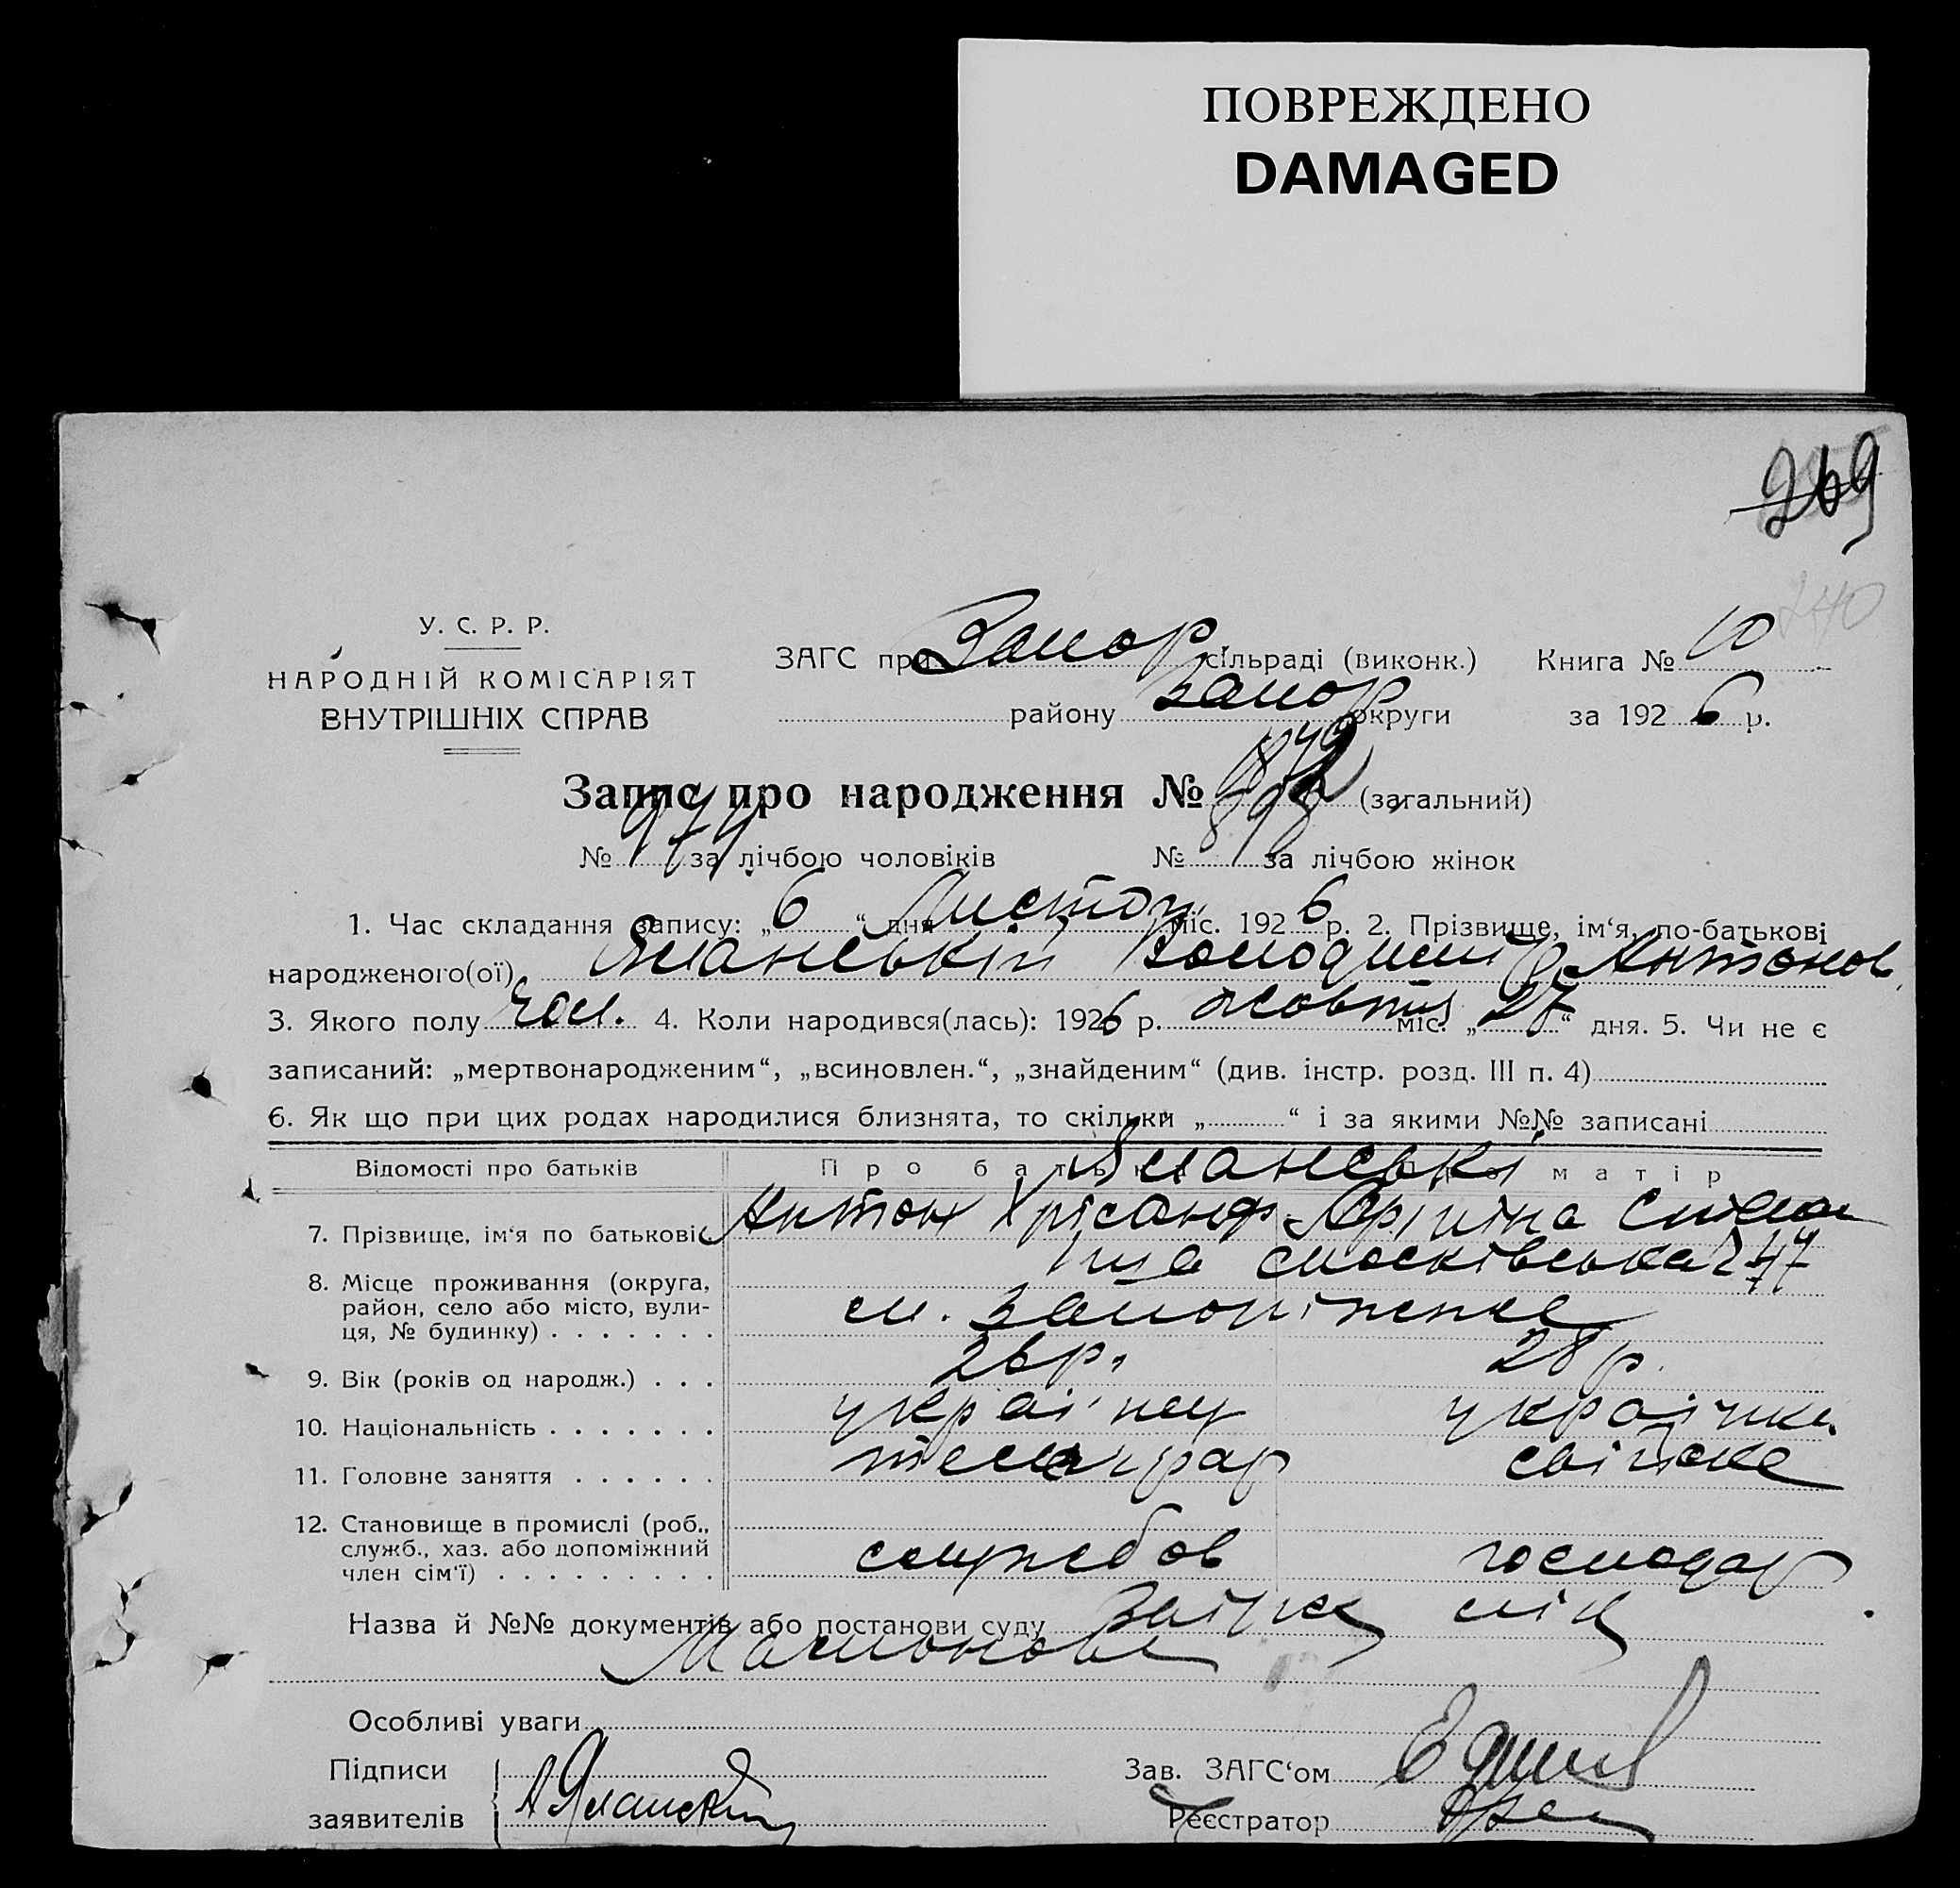 ПОВРЕЖДЕНО
DAMAGED
269
240
У. С. Р. Р.
НАРОДНІЙ КОМІСАРІЯТ
ВНУТРІШНІХ СПРАВ
ЗАГС при Запор сільраді (виконк.) Книга № 10
району Запор округи за 1926 р.
Запис про народження № (загальний)
№ 974 за лічбою чоловіків № 898 за лічбою жінок
1. Час складання запису: „6“ дня Листоп міс. 1926 р. 2. Прізвище, ім‘я, по-батькові
народженого(ої) Яланській Володимир Антонов
3. Якого полу чол. 4. Коли народився(лась): 1926 р. жовтня міс. „27“ дня. 5. Чи не є
записаний: „мертвонародженим“, „всиновлен.“, „знайденим“ (див. інстр. розд. III п. 4)
6. Як що при цих родах народилися близнята, то скільки „ “ і за якими №№ записані
Відомості про батьків Про батька Про матір
Яланські
7. Прізвище, ім‘я по батькові Антон Хрісанф
8. Місце проживання (округа, район, село або місто, вулиця, № будинку) московська 247
м. Запоріжже
9. Вік (років од народж.) 26 р. 28 р.
10. Національність українец українка
11. Головне заняття телеграф свійске
12. Становище в промислі (роб., служб., хаз. або допоміжний член сім‘ї) службов господар
Назва й №№ документів або постанови суду
Особливі уваги
Підписи
заявителів А Яланский
Зав. ЗАГС‘ом
Реєстратор